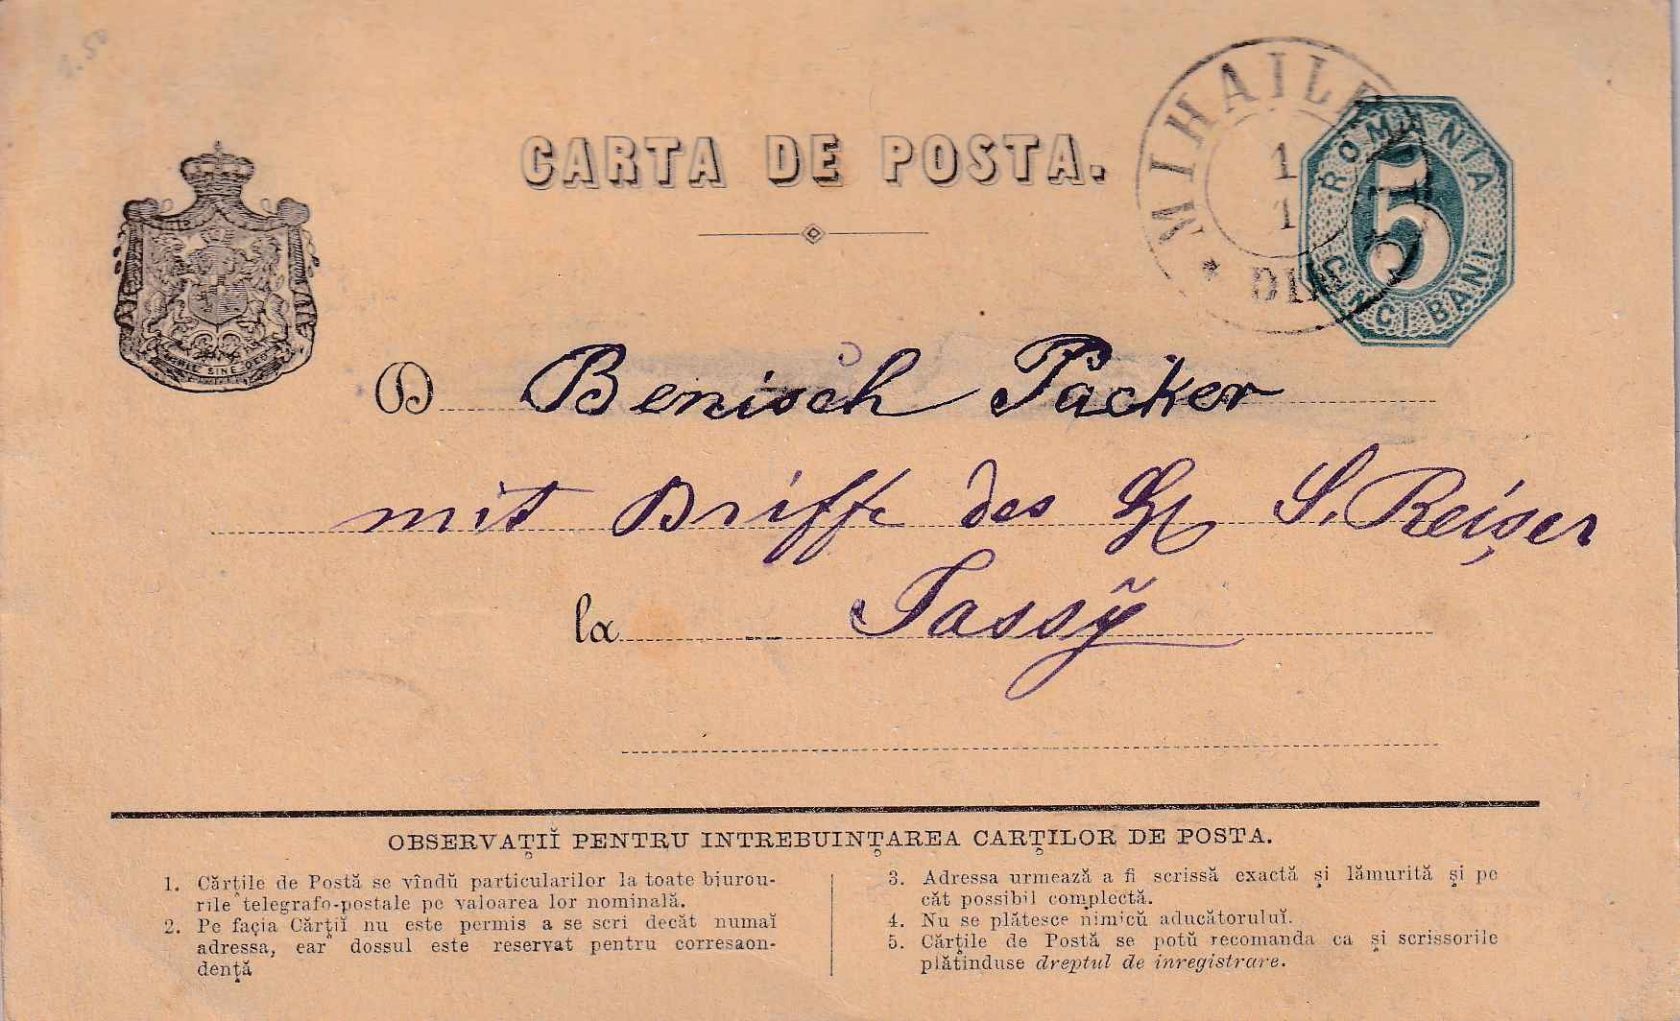 1.50
CARTA DE POSTA.
MIHAILE
1
1
ROMANIA
5
CINCI BANI
SINE DEO
D Benisch Packer
mit Briffe des H S. Reiser
la Jassÿ
OBSERVAȚIĬ PENTRU INTREBUINȚAREA CARȚILOR DE POSTA.
1. Cărțile de Postă se vîndŭ particularilor la toate biurou-
rile telegrafo-postale pe valoarea lor nominală.
2. Pe fația Cărțiĭ nu este permis a se scri decăt numaĭ
adressa, ear dossul este reservat pentru corresaon-
dență
3. Adressa urmează a fi scrissă exactă și lămurită și pe
căt possibil complectă.
4. Nu se plătesce nimicŭ aducătoruluĭ.
5. Cărțile de Postă se potŭ recomanda ca și scrissorile
plătinduse dreptul de inregistrare.